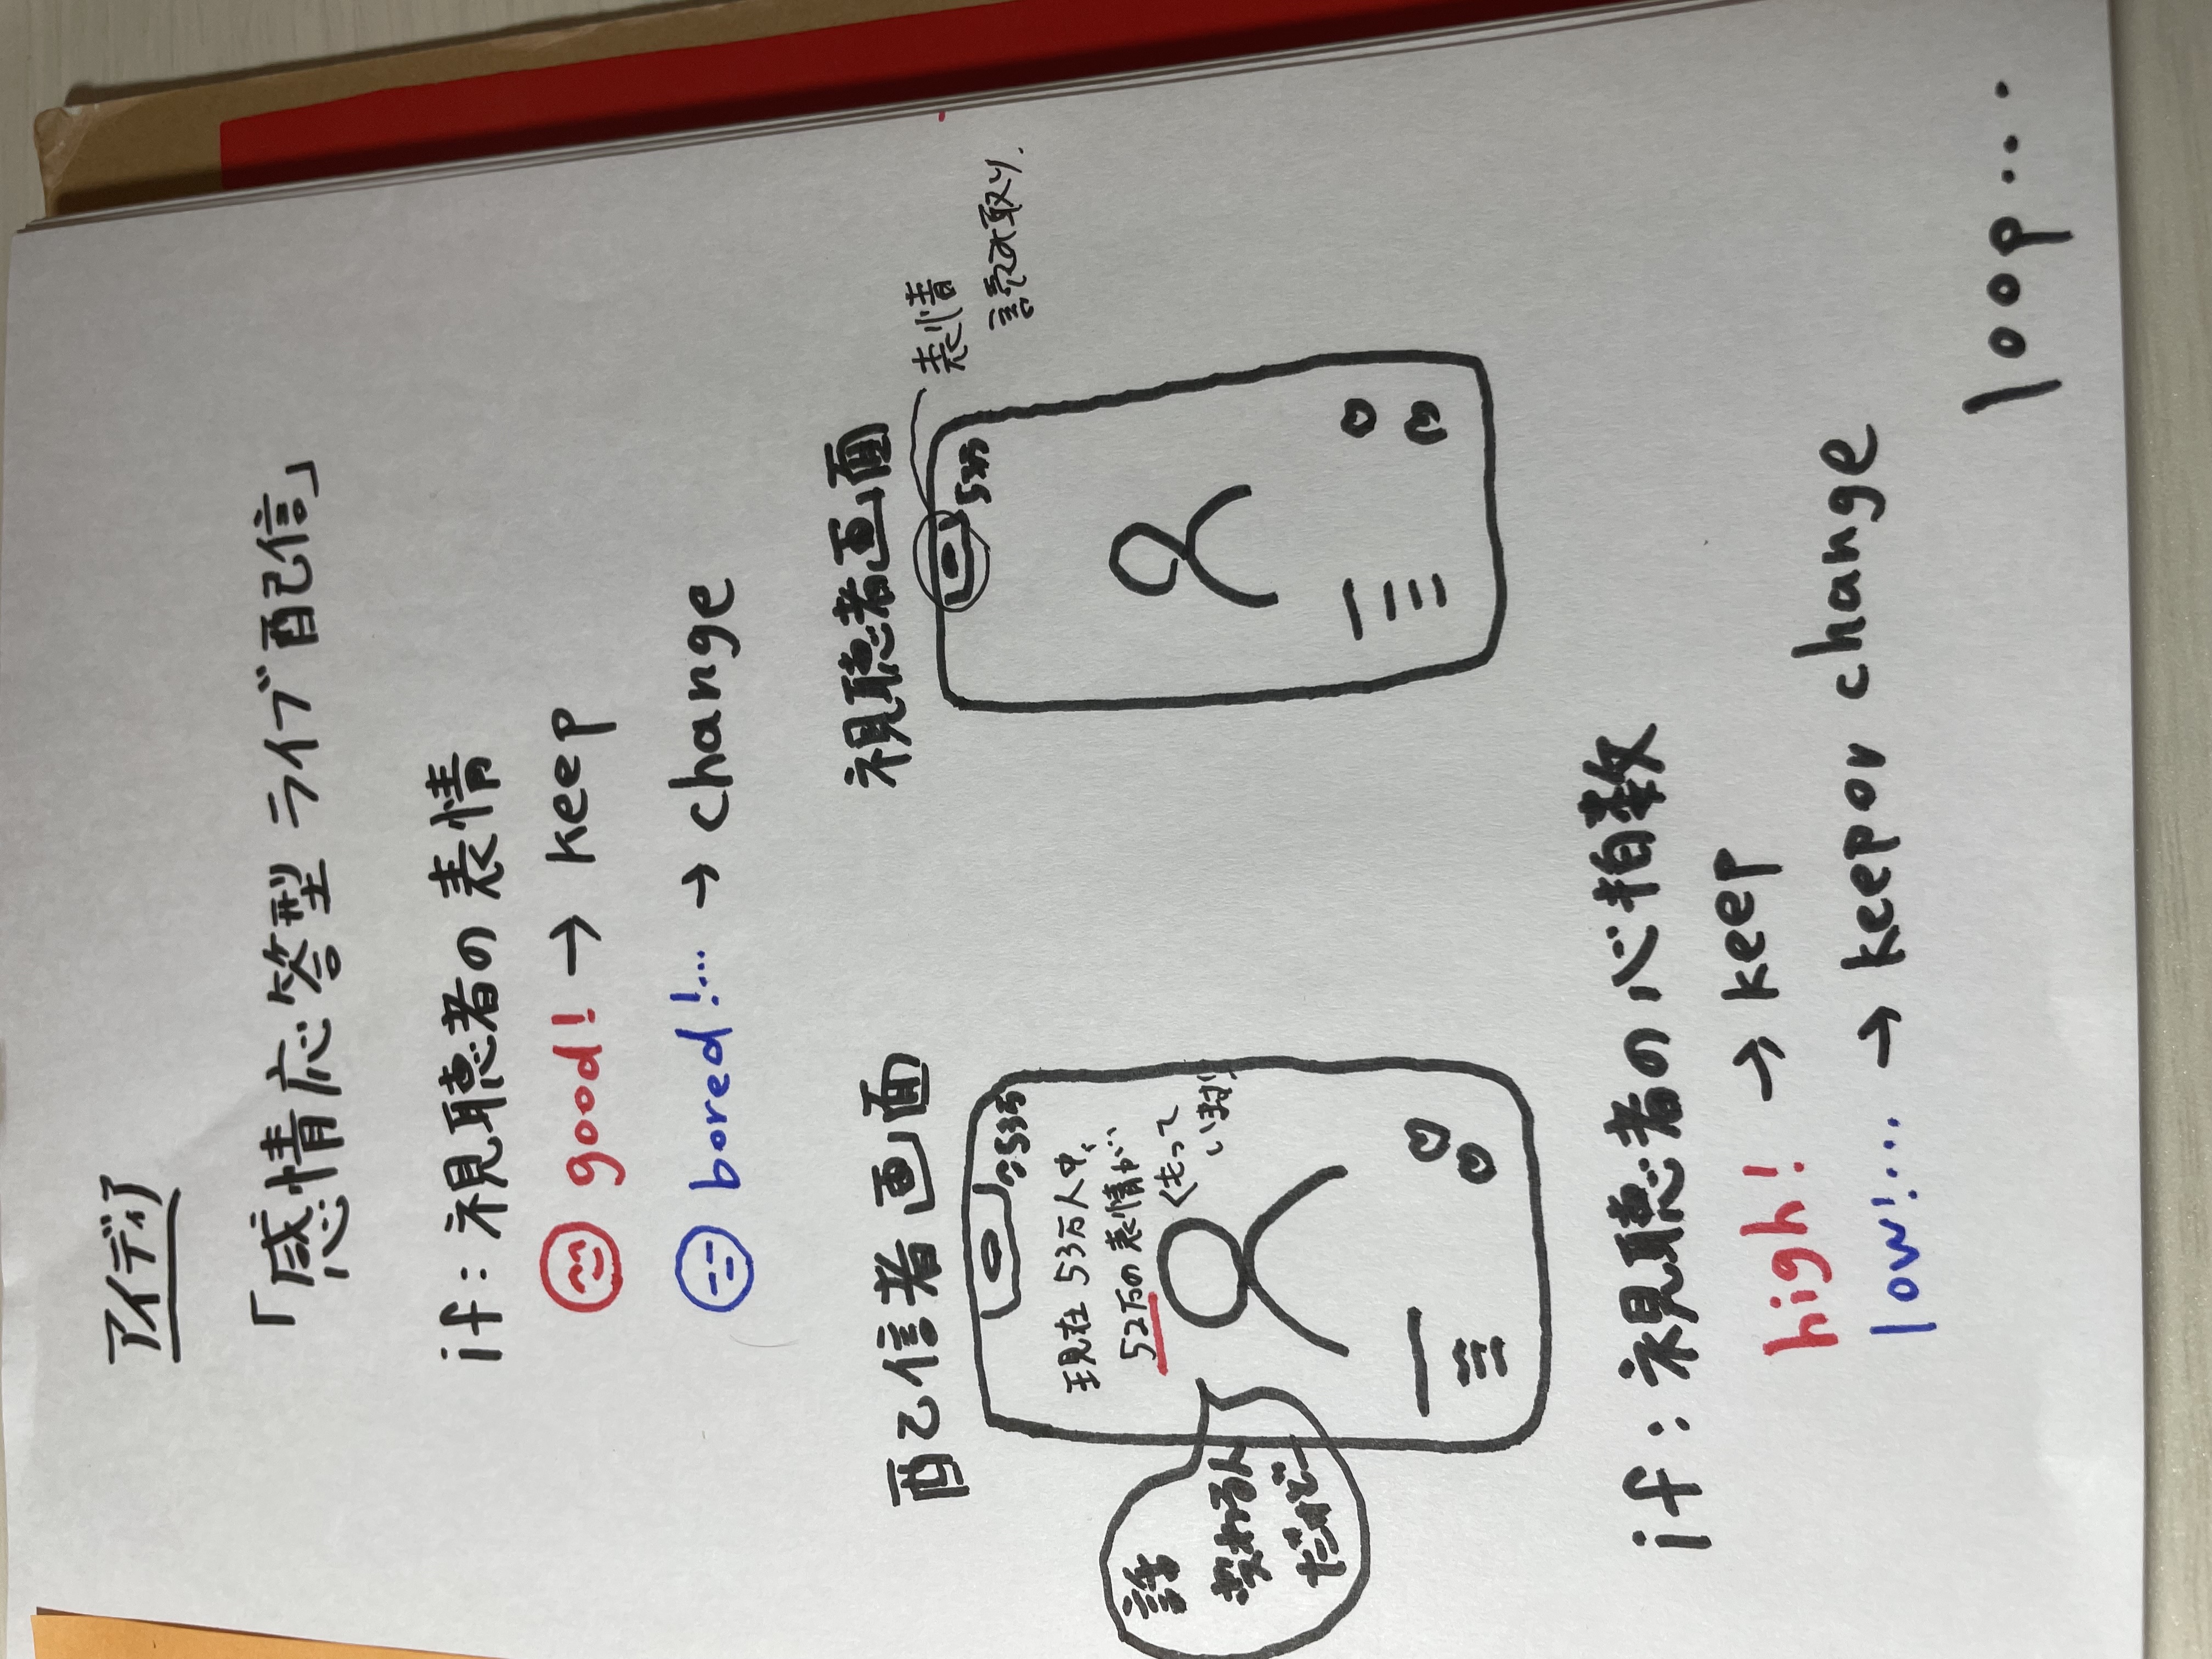 アイディア
「感情応答型 ライブ配信」
if:視聴者の表情
good! → keep
bored!... → change
配信者画面
53万
現在 53万人中、
52万の表情が
くもって
います!
話
変わるん
だけどー
視聴者画面
53万
表情
読み取り.
if:視聴者の心拍数
high! → keep
low!... → keep or change
loop...